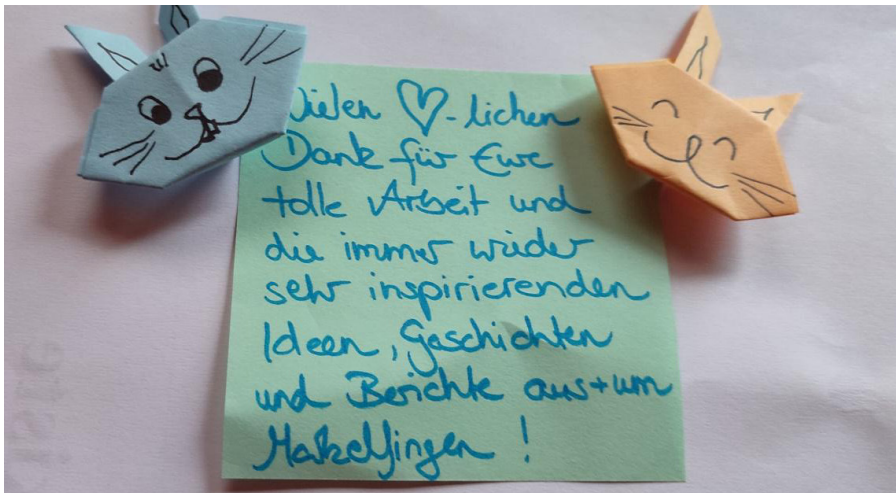 Vielen ♡-lichen
Dank für Eure
tolle Arbeit und
die immer wieder
sehr inspirierenden
Ideen, Geschichten
und Berichte aus+um
Markelfingen!